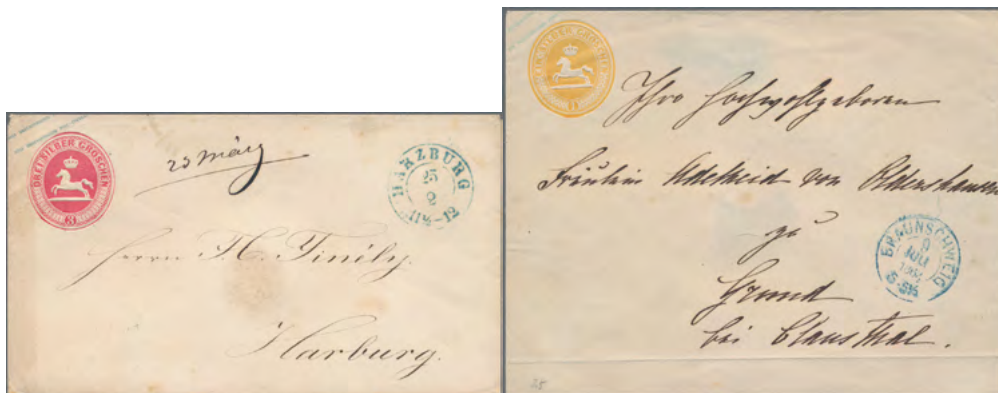 DREI SILBER GROSCHEN
3
23 März
HARZBURG
25
2
11½-12
Herrn H.
Harburg.
EIN SILBER GROSCHEN
1
Ihro Hochwohlgeboren
Fräulein Adelheid von Oldershausen
zu
Grund
bei Clausthal.
BRAUNSCHWEIG
9
JULI
25